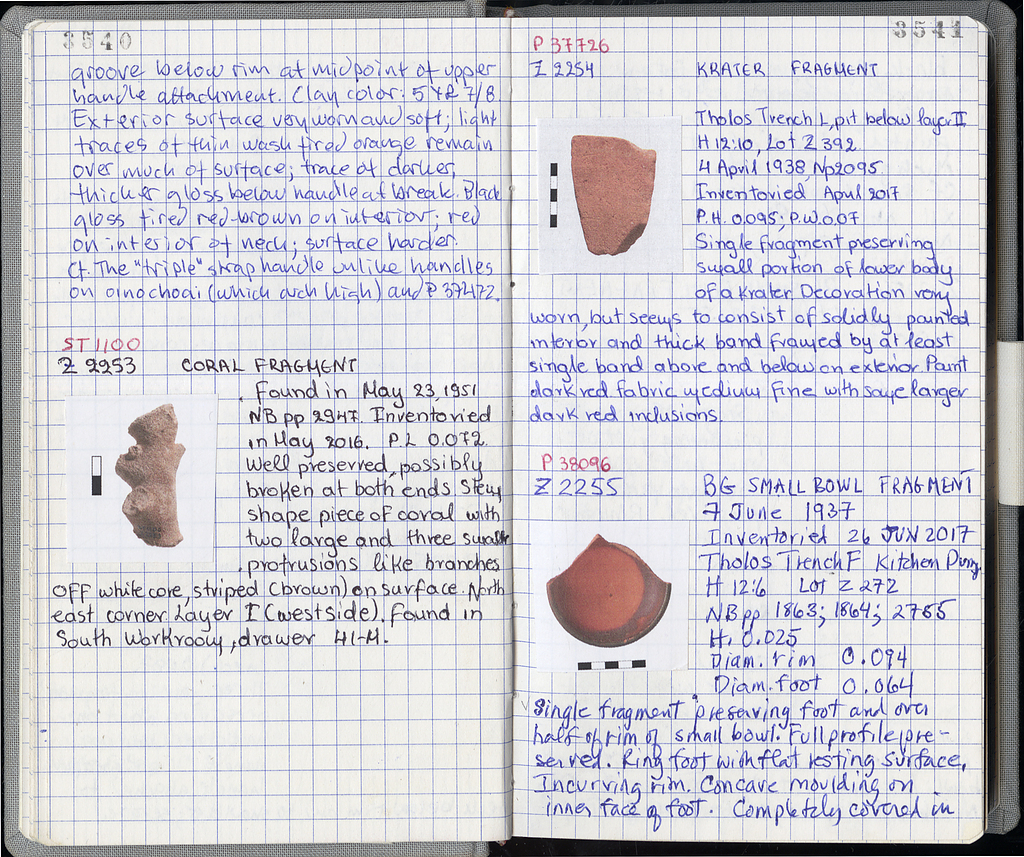 3540
groove below rim at midpoint of upper
handle attachment. Clay color: 5 YR 7/8.
Exterior surface very worn and soft; light
traces of thin wash fired orange remain
over much of surface; trace of darker,
thicker gloss below handle at break. Black
gloss fired red-brown on interior; red
on interior of neck; surface harder.
Cf. The "triple" strap handle unlike handles
on oinochoai (which arch high) and P 37472.
ST 1100
Z 2253 CORAL FRAGMENT
Found in May 23, 1951
NB pp 2947. Inventoried
in May 2016. P.L 0.072.
Well preserved, possibly
broken at both ends Stem
shape piece of coral with
two large and three small
protrusions like branches
OFF white core, striped (brown) on surface. North
east corner Layer I (west side). Found in
South Workroom, drawer 41-M.
3541
P 37726
Z 2254 KRATER FRAGMENT
Tholos Trench L, pit below layer II
H 12:10, Lot Z 392
4 April 1938, Np 2095
Inventoried April 2017
P.H. 0.095; P.W. 0.07
Single fragment preserving
small portion of lower body
of a Krater. Decoration very
worn, but seems to consist of solidly painted
interior and thick band framed by at least
single band above and below on exterior. Paint
dark red. fabric medium fine with some larger
dark red inclusions.
P 38096
Z 2255 BG SMALL BOWL FRAGMENT
7 June 1937
Inventoried 26 JUN 2017
Tholos Trench F Kitchen Dump
H 12:6 Lot Z 272
NB pp 1863; 1864; 2765
H. 0.025
Diam. rim 0.094
Diam. foot 0.064
Single fragment preserving foot and over
half of rim of small bowl. Full profile pre-
served. Ring foot with flat resting surface,
Incurving rim. Concave moulding on
inner face of foot. Completely covered in